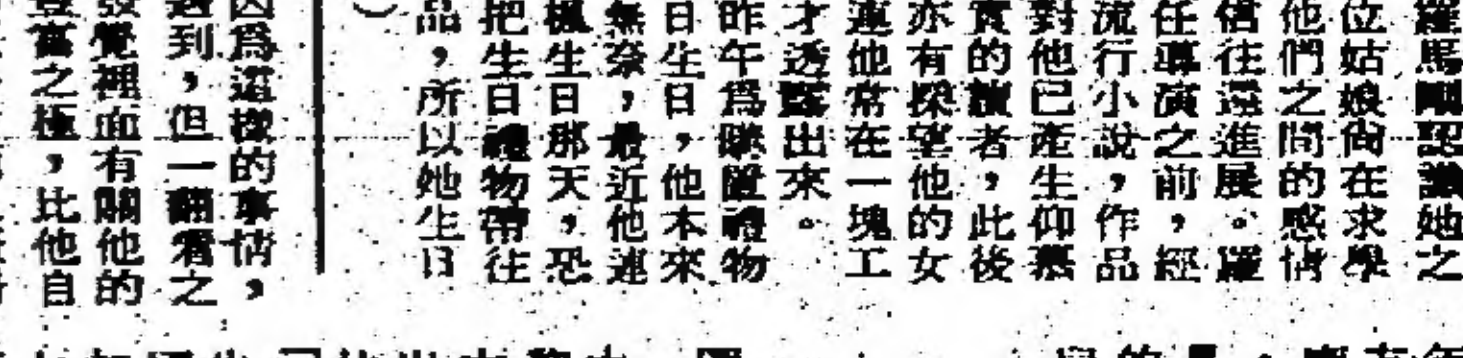 羅馬剛認識她之
位姑娘尚在求學
他們之間的感情
信往還進展。羅
任導演之前，經
流行小說，作品
對他已產生仰慕
實的讀者，此後
亦有探望他的女
連他常在一塊工
才透露出來。
昨午爲購置禮物
日生日，他本來
無奈，最近他連
楓生日那天，恐
把生日禮物帶往
品，所以她生日
）
因爲這樣的事情，
遇到，但一翻看之
發覺裡面有關他的
豐富之極，比他自